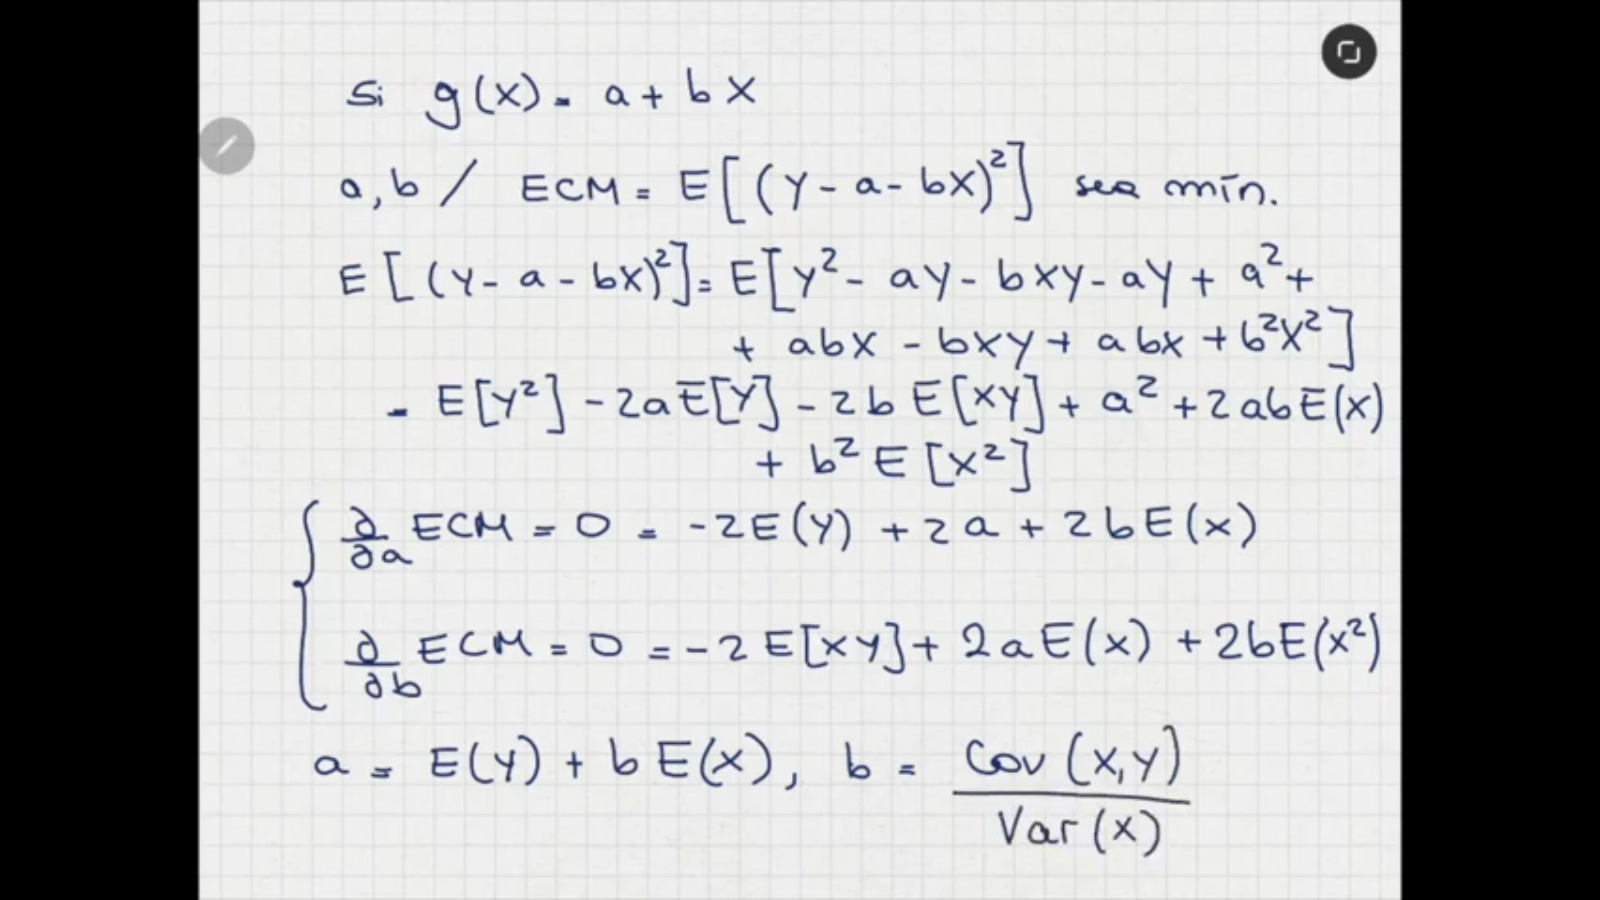 Si g(x) = a + bX
a, b / ECM = E[(Y - a - bX)²] sea mín.
E[(Y - a - bX)²] = E[Y² - aY - bXY - aY + a² +
+ abX - bXY + abX + b²X²]
= E[Y²] - 2aE[Y] - 2bE[XY] + a² + 2abE(X)
+ b²E[X²]
∂/∂a ECM = 0 = -2E(Y) + 2a + 2bE(X)
∂/∂b ECM = 0 = -2E[XY] + 2aE(X) + 2bE(X²)
a = E(Y) + bE(X), b = Cov(X,Y)/Var(X)